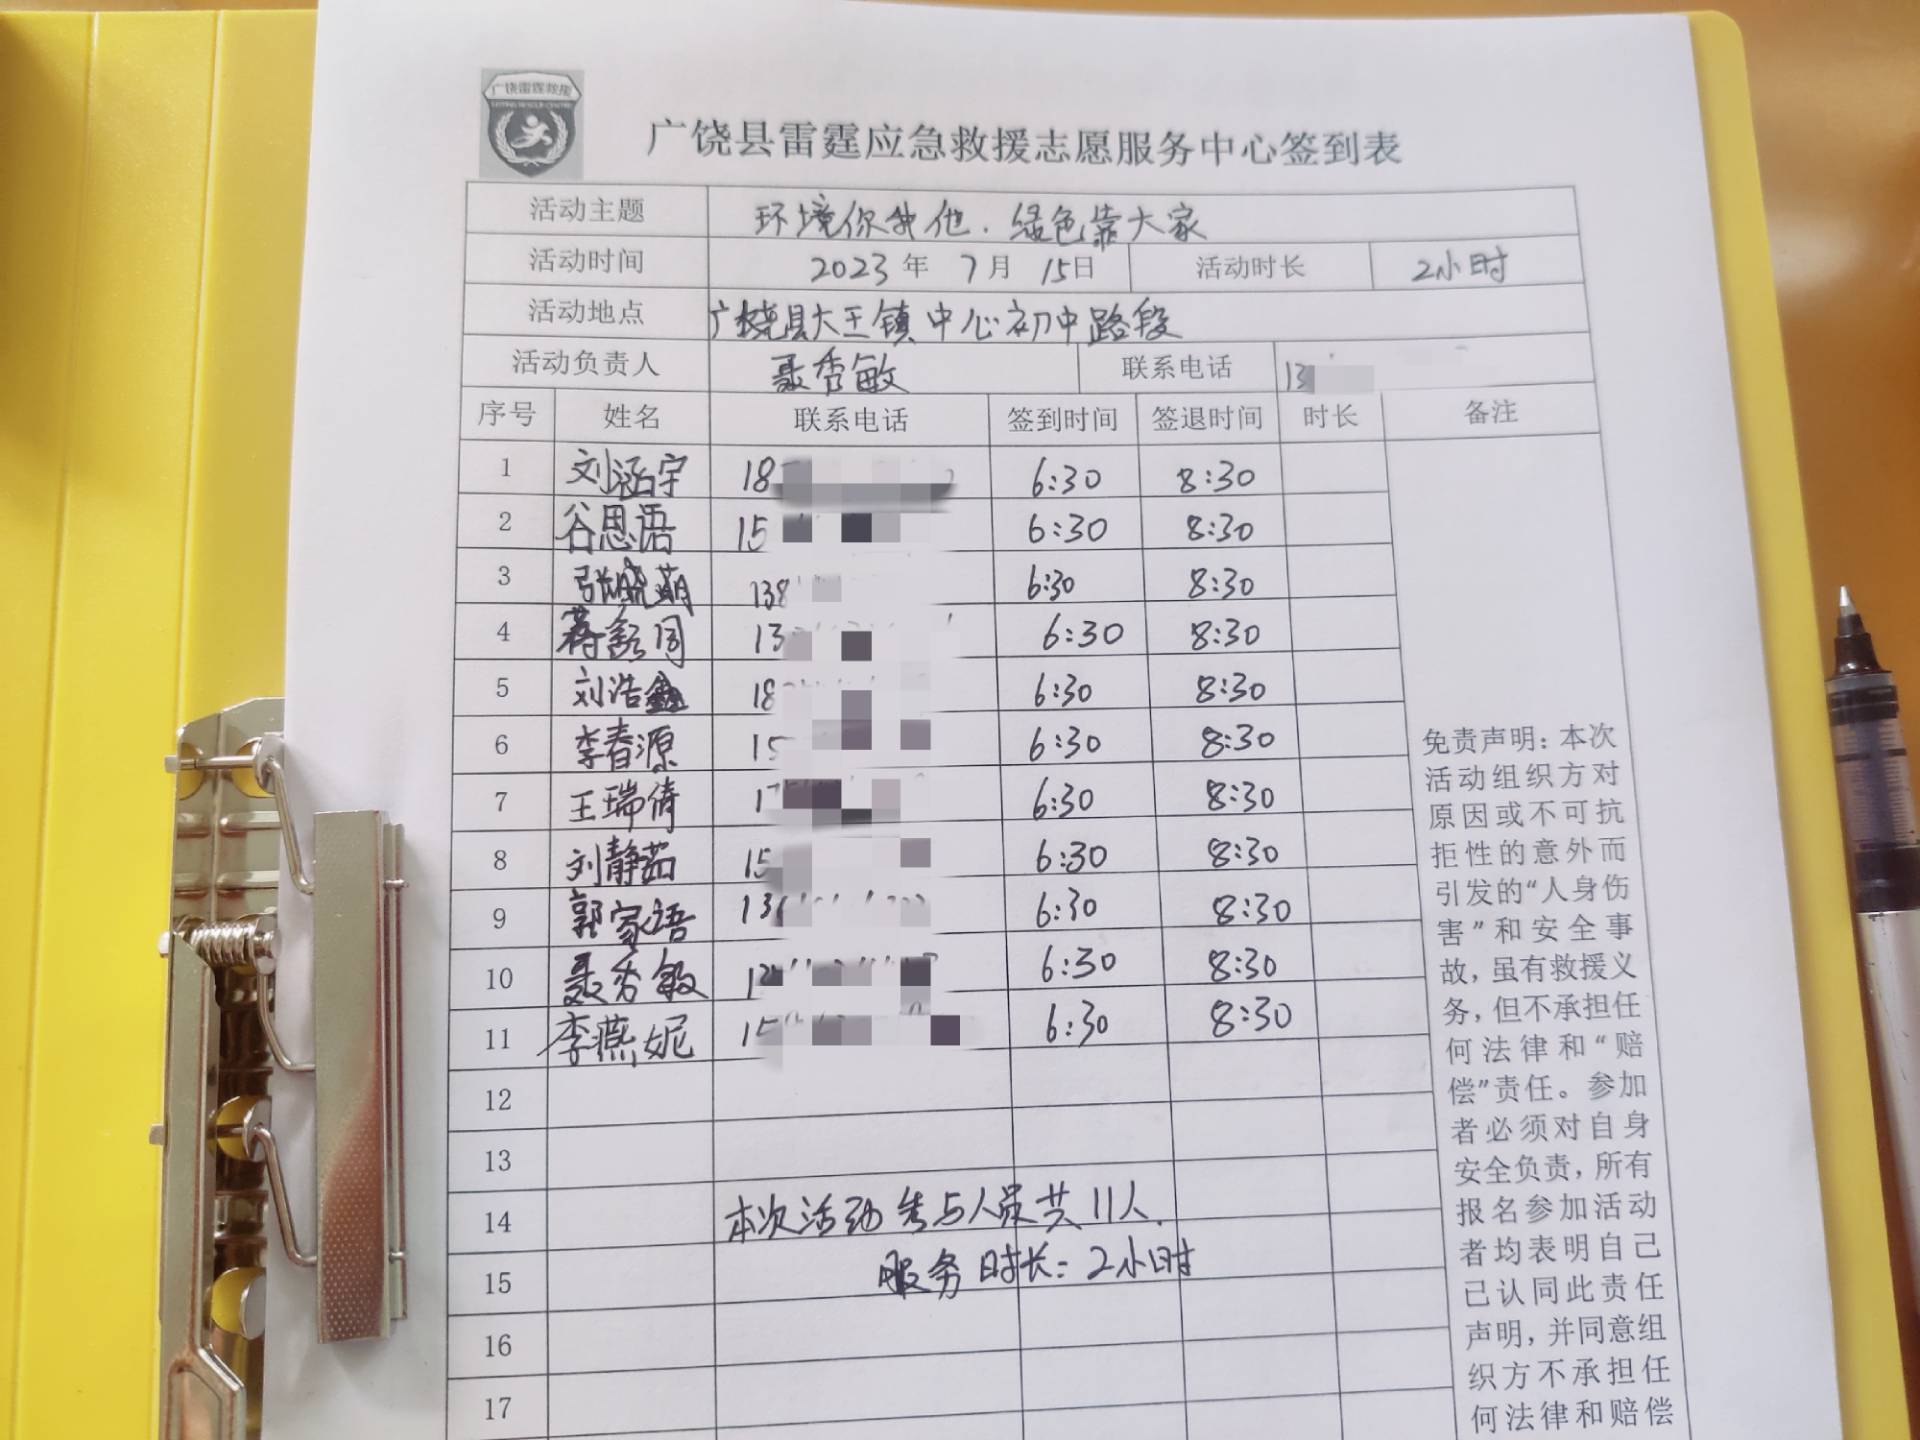 广饶雷霆救援
广饶县雷霆应急救援志愿服务中心签到表
活动主题 环境你我他.绿色靠大家
活动时间 2023年 7月 15日 活动时长 2小时
活动地点 广饶县大王镇中心初中路段
活动负责人 聂秀敏 联系电话 13
序号 姓名 联系电话 签到时间 签退时间 时长 备注
1 刘涵宇 18 6:30 8:30
2 谷思语 15 6:30 8:30
3 张晓萌 138 6:30 8:30
4 蒋 同 13 6:30 8:30
5 刘浩鑫 18 6:30 8:30
6 李春源 15 6:30 8:30
7 王瑞倩 1 6:30 8:30
8 刘静茹 15 6:30 8:30
9 郭家语 13 6:30 8:30
10 聂秀敏 1 6:30 8:30
11 李燕妮 15 6:30 8:30
12
13
14 本次活动参与人员共11人.
15 服务时长:2小时
16
17
免责声明:本次
活动组织方对
原因或不可抗
拒性的意外而
引发的“人身伤
害”和安全事
故,虽有救援义
务,但不承担任
何法律和“赔
偿”责任。参加
者必须对自身
安全负责,所有
报名参加活动
者均表明自己
已认同此责任
声明,并同意组
织方不承担任
何法律和赔偿